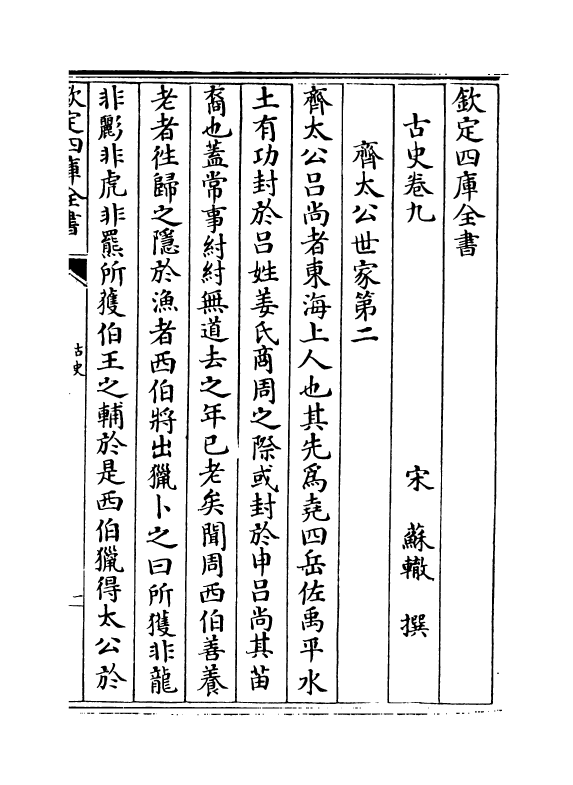 欽定四庫全書
古史卷九
宋 蘇轍 撰
齊太公世家第二
齊太公呂尚者東海上人也其先為堯四岳佐禹平水
土有功封於呂姓姜氏商周之際或封於申呂尚其苗
裔也蓋常事紂紂無道去之年已老矣聞周西伯善養
老者往歸之隱於漁者西伯將出獵卜之曰所獲非龍
非彲非虎非羆所獲伯王之輔於是西伯獵得太公於
欽定四庫全書
古史
一